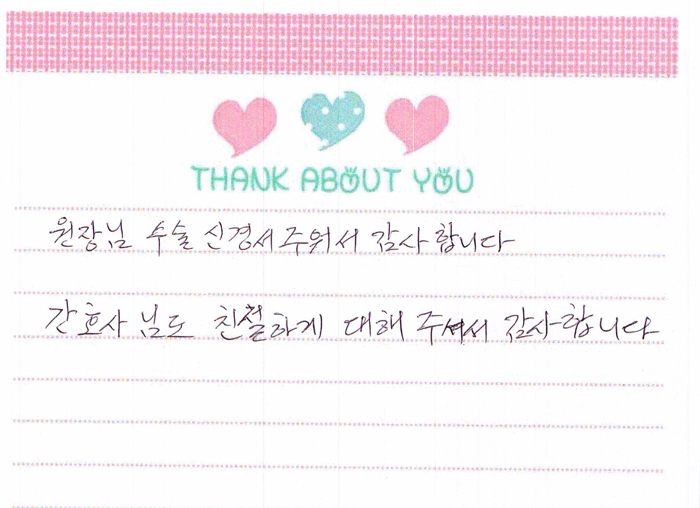 THANK ABOUT YOU
원장님 수술 신경서주워서 감사합니다
간호사님도 친절하게 대해 주셔서 감사합니다